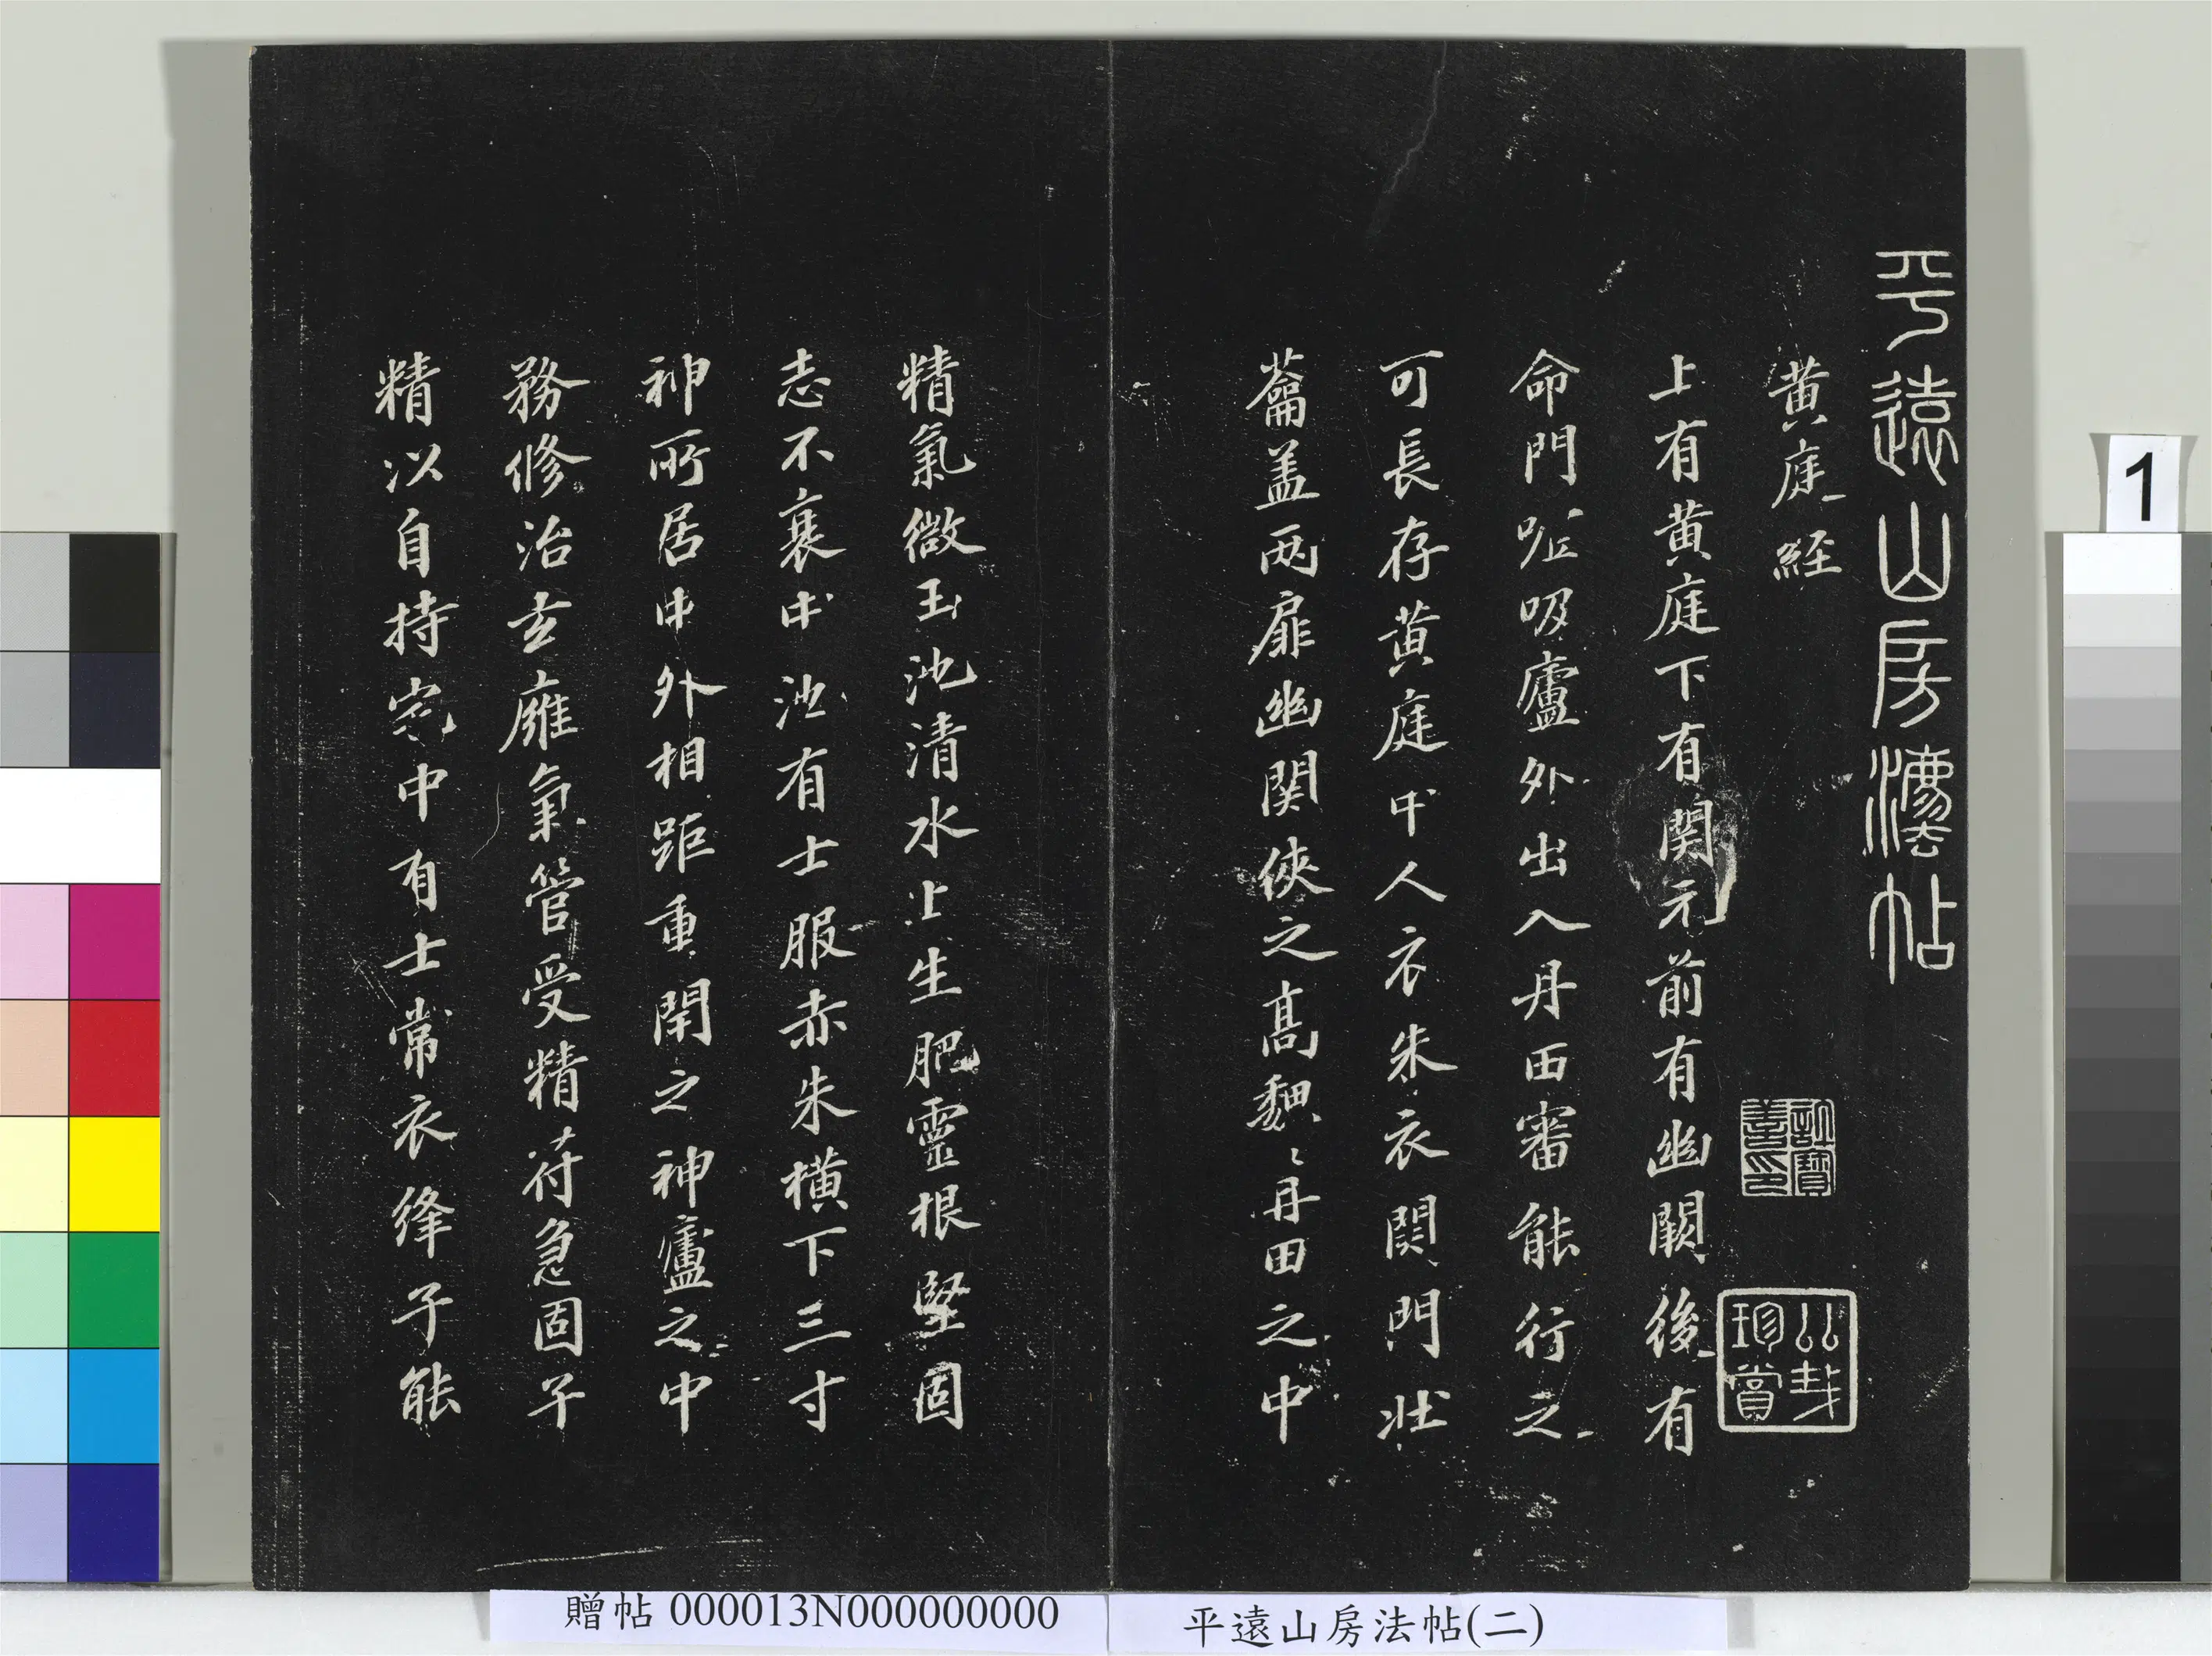 平遠山房灋帖
黃庭經
上有黃庭下有関元前有幽闕後有
命門呼吸廬外出入丹田審能行之
可長存黃庭中人衣朱衣関門壯
蘥盖兩扉幽関俠之髙巍〻丹田之中
精氣微玉池清水上生肥靈根堅固
志不衰中池有士服赤朱橫下三寸
神所居中外相距重閇之神廬之中
務修治玄癰氣管受精苻急固子
精以自持宅中有士常衣絳子能
珍賞
1
贈帖 000013N000000000
平遠山房法帖(二)